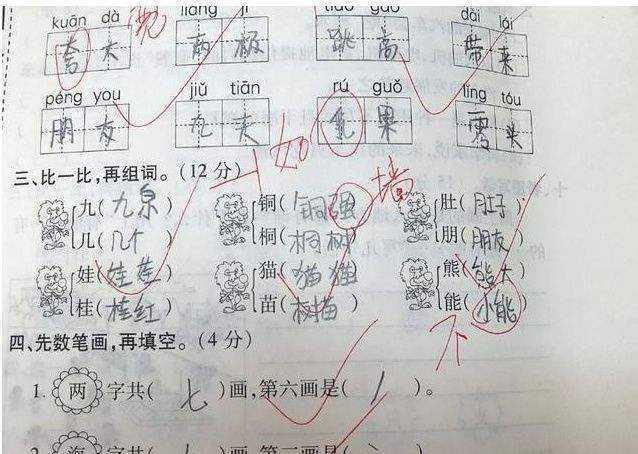 kuān dà liǎng jí tiào gāo dài lái
夸 大 两 极 跳 高 带 来
péng you jiǔ tiān rú guǒ líng tóu
朋 友 九 天 果 零 头
如
三、比一比,再组词。(12 分)
墙
九(九泉) 铜(铜强) 肚(肚子)
几(几个) 桐(桐树) 朋(朋友)
娃(娃娃) 猫(猫猫) 熊(熊大)
桂(桂红) 苗(树苗) 能(小能)
不
四、先数笔画,再填空。(4 分)
1. 两 字共( 七 )画,第六画是( )。
字共( )画,第二画是(